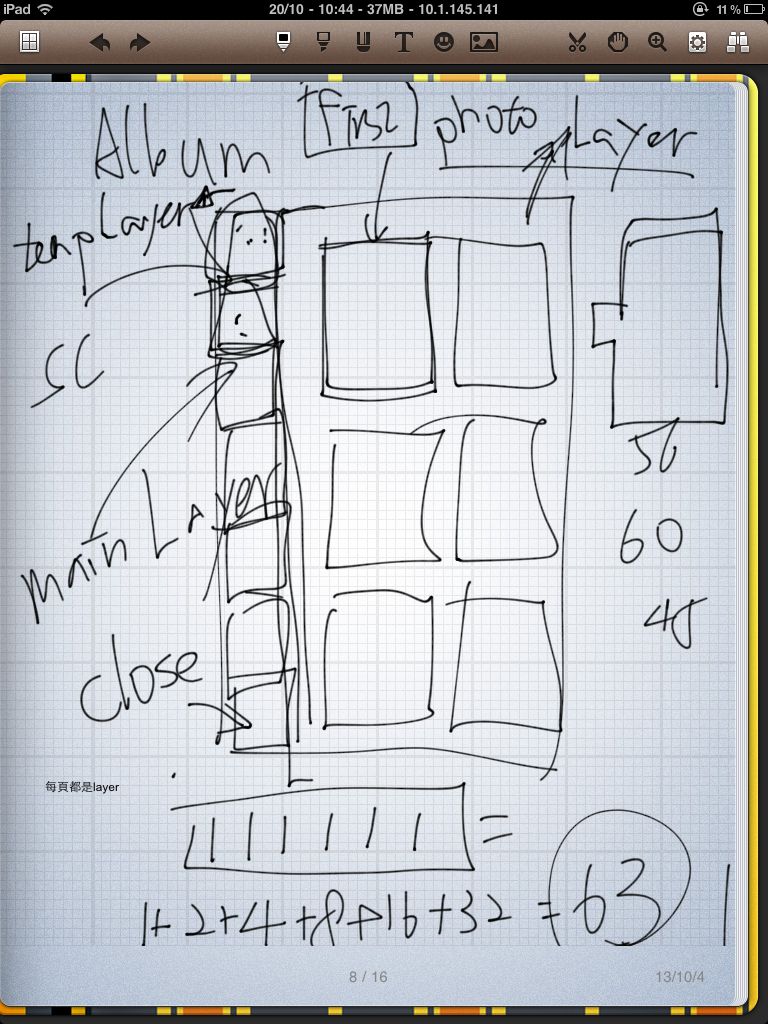 iPad 20/10 - 10:44 - 37MB - 10.1.145.141 11%
T
Album photo Layer
Layer
SC
main Layer
close
50
60
45
每頁都是layer
1 1 1 1 1 1 =
1+2+4+8+16+32 = 63
8 / 16
13/10/4